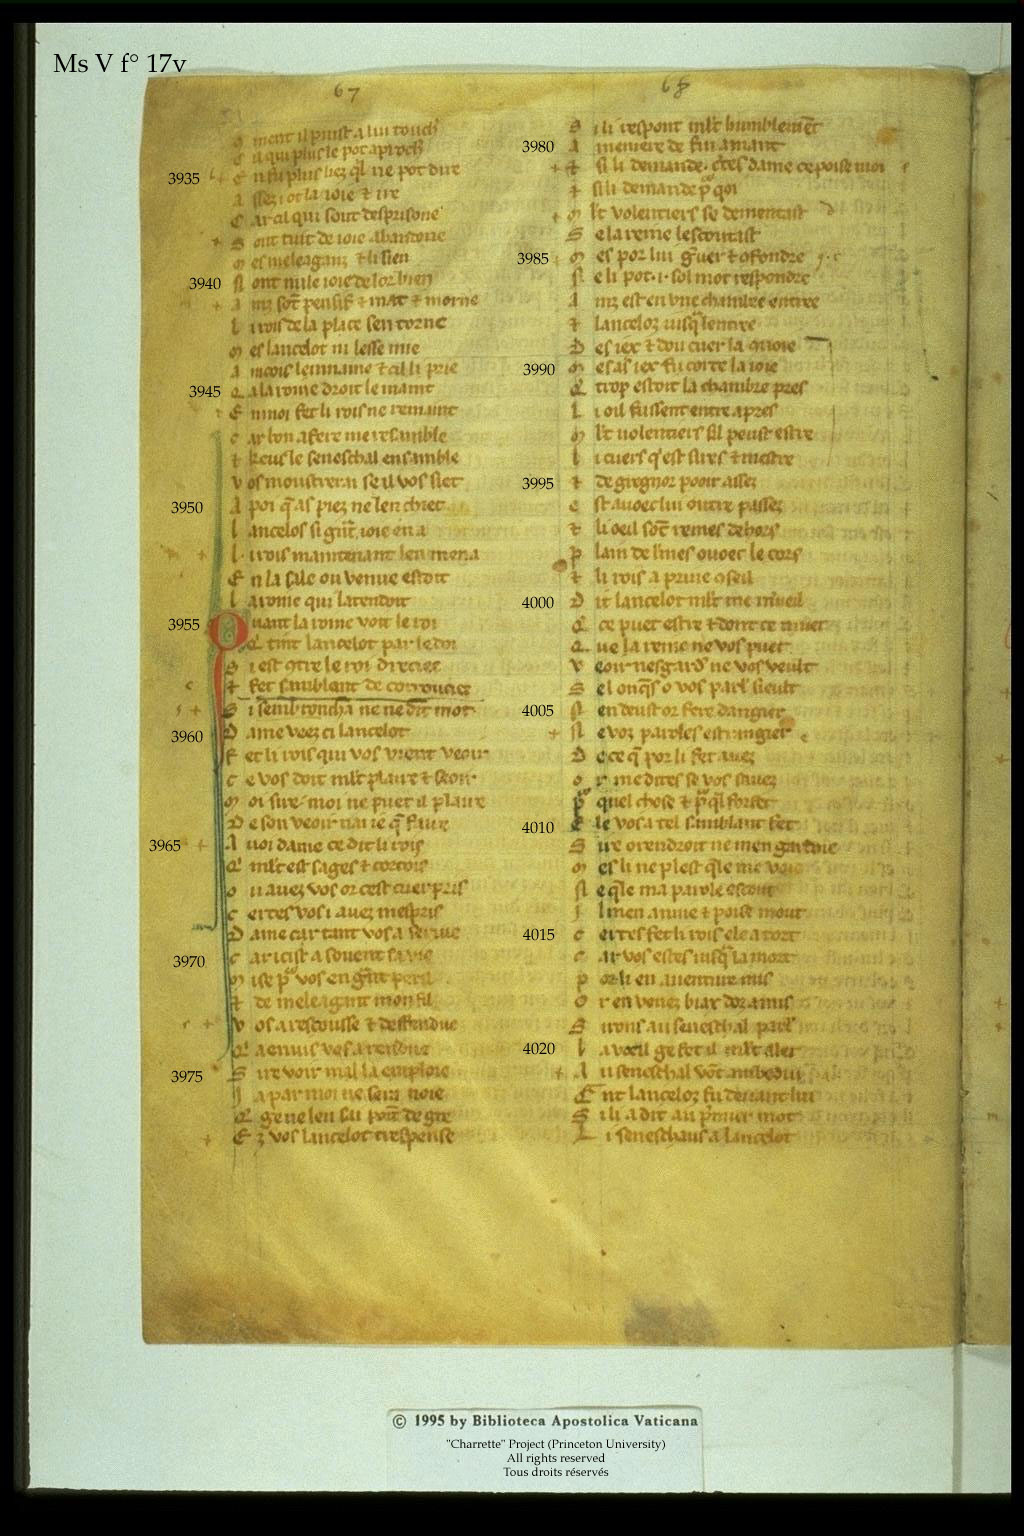 Ms V f° 17v
67
68
ment il puist a lui touch
c il qui plus le pot aproch
3935 e n fu plus liez ql ne pot dire
a ssez i ot la ioie ⁊ ire
C ar cil qui sont desprisone
S ont tuit de ioie abandone
m es meleaganz ⁊ li sien
3940 N ont nule ioie de lor bien
A inz sōt pensif ⁊ mat ⁊ morne
l i rois de la place sen torne
m es lancelot ni lesse mie
A incois lenmaine ⁊ cil li prie
3945 Q a la roine droit le maint
E n moi fet li rois ne remaint
c ar bon afere me resamble
⁊ keus le seneschal ensamble
v os moustrerai se il vos siet
3950 A poi q̄ as piez ne len chiet
l ancelos si gn̄t ioie en a
l i rois maintenant len mena
E n la sale ou venue estoit
l a roine qui latendoit
3955 Q uant la roine voit le roi
Q tint lancelot par le doi
S i est ꝯtre le roi dreciee
⁊ fet samblant de corrouciee
S i sembroncha ne ne dit mot
3960 D ame veez ci lancelot
F et li rois qui vos vient veoir
c e vos doit ml't plaire ⁊ seoir
M oi sire moi ne puet il plaire
D e son veoir nai ie q̄ faire
3965 A uoi dame ce dit li rois
Q ml't est sages ⁊ cortois
o u avez vos or cest cuer pris
c ertes vos i avez mespris
D ame car tant vos a servie
3970 c ar icist a sovent sa vie
m ise p̄ vos en gn̄t peril
⁊ de meleagant mon fil
V os a rescousse ⁊ deffendue
Q a envis vos a rendue
3975 S ire voir mal la emploie
J a par moi ne sera noie
Q ge ne len sai point de gre
E z vos lancelot trespense
S i li respont ml't humblemēt
3980 A meniere de fin amant
⁊ si li demande . ctes dame ce poise moi
⁊ si li demande p̄ qoi
m lt volentiers se dementast
S e la reine lescoutast
3985 m es por lui gr̄uer ⁊ ꝯfondre
N e li pot .i. sol mot respondre
A inz est en vne chambre entree
⁊ lanceloz iusq̄ lentree
D es iex ⁊ dou cuer la ꝯuoie
3990 m es as iex fu corte la voie
Q trop estoit la chambre pres
L i oil fussent entre apres
m lt uolentiers sil peust estre
l i cuers q'est sires ⁊ mestre
3995 ⁊ de gregnor pooir assez
e st avoec li outre passez
⁊ li oeil sōt remes dehors
P lain de l'mes ovoec le cors
⁊ li rois a prive ꝯseil
4000 D it lancelot ml't me m'veil
Q ce puet estre ⁊ dont ce muet
Q ue la reine ne vos puet
V eoir nesgard' ne vos veult
S el onqs o vos parl' sieult
4005 N en deust or fere dangier
N e voz paroles estrangier
D e ce q̄ por li fet avez
o r me dites se vos savez
P quel chose ⁊ p̄ ql forfet
4010 E le vos a tel samblant fet
S ire orendroit ne men gardoie
m es li ne plest qle me voie
N e qle ma parole escout
J l men anuie ⁊ poise mout
4015 c ertes fet li rois ele a tort
c ar vos estes iusq̄ la mort
p or li en aventure mis
O r en venez biax doz amis
S irons au seneschal parl'
4020 l a voeil ge fet il ml't aler
A u seneschal vōt ambedui
Q nt lanceloz fu devant lui
S i li a dit au p̄mier mot
L i seneschaus a lancelot
© 1995 by Biblioteca Apostolica Vaticana
"Charrette" Project (Princeton University)
All rights reserved
Tous droits réservés